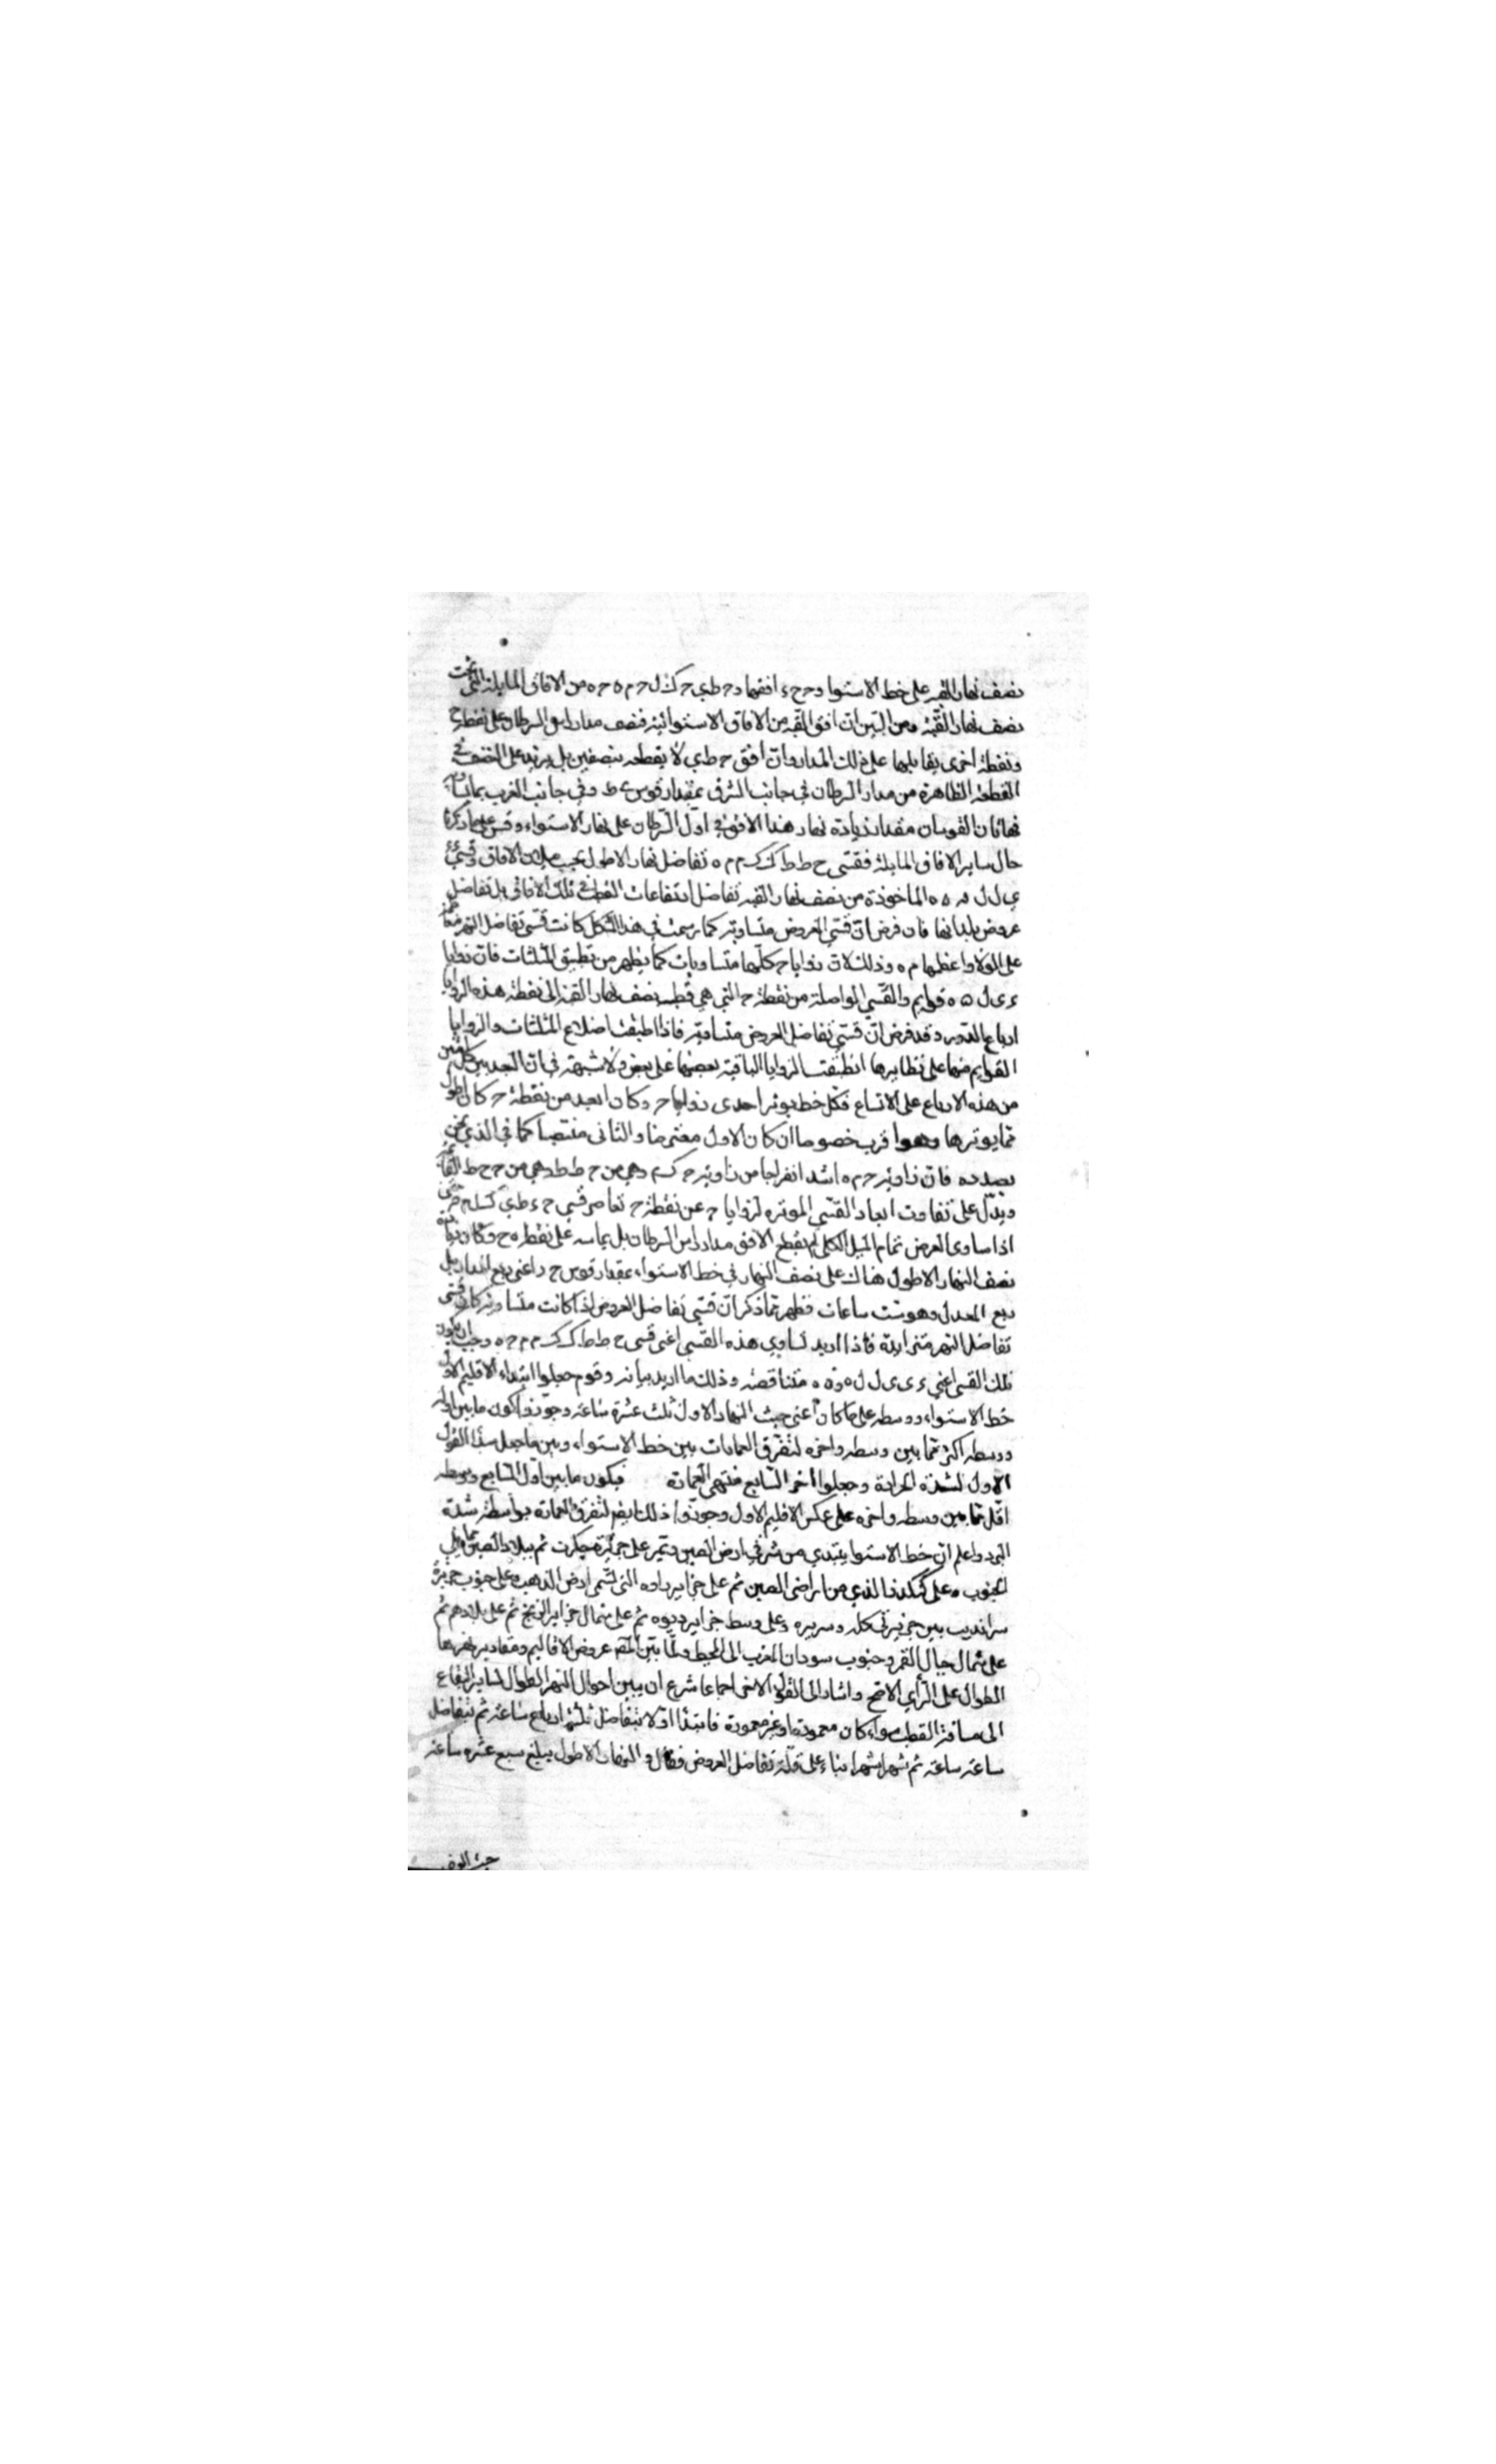 نصف نهار القبة على خط الاستوا و ح ح ء افقها و ح ط ي ح ك ل ح م ه ح ه من الافاق المايلة التي تحت
نصف نهار القبة ومن البين ان افق القبة من الافاق الاستوائية فنصف مدار راس السرطان على نقطة ح
ونقطة اخرى يقابلها على ذلك المدار وان افق ح ط ي لا يقطعه بنصفين بل يزيد على النصف في
القطعة الظاهرة من مدار السرطان في جانب الشرق بمقدار قوس ح ط وفي جانب الغرب بما يساويه
فهاتان القوسان مقدار زيادة نهار هذا الافق في اول السرطان على نهار الاستواء وقس على ما ذكرنا
حال ساير الافاق المايلة فقسي ح ط ط ك ك م م ه تفاضل نهار الاطول بحسب تلك الافاق وقسي ء ي
ي ل ل ه ه ه الماخوذة من نصف نهار القبة تفاضل ارتفاعات القطب في تلك الافاق بل تفاضل
عروض بلدانها فان فرض ان قسي العروض متساوية كما رسمت في هذا الشكل كانت قسي تفاضل النهر
على الولا واعظمها م ه وذلك لان زوايا ح كلها متساويات كما يظهر من تطبيق المثلثات فان زوايا
ء ى ل ه ه قوايم والقسي الواصلة من نقطة ح التي هي قطب نصف نهار القبة الى نقطة هذه الزوايا
ارباع الدور وقد فرض ان قسي تفاضل العروض متساوية فاذا طبقت اضلاع المثلثات والزوايا
القوايم منها على نظايرها انطبقت الزوايا الباقية بعضها على بعض ولا شبهة في ان البعد بين كل اثنين
من هذه الارباع على الاتساع فكل خط يوتر احدى زوايا ح وكان ابعد من نقطة ح كان اطول
مما يوترها وهو اقرب خصوصا ان كان الاول معترضا والثاني منتصبا كما في الذي نحن
بصدده فان زاوية ح م ه اشد انفراجا من زاوية ح ك م وهي من ح ط ط وهي من ح ح ط القائمة
ويدل على تفاوت ابعاد القسي الموتره لزوايا ح عن نقطة ح تعاصر قسي ح ء ط ي ك ل م
اذا ساوى العرض تمام الميل الكلي لم يقطع الافق مدار راس السرطان بل يماسه على نقطة ح وكان زيادة
نصف النهار الاطول هناك على نصف النهار في خط الاستواء بمقدار قوس ح ر اعني ربع المدار بل
ربع المعدل وهو ست ساعات فظهر مما ذكر ان قسي تفاضل العروض اذا كانت متساوية كان قسي
تفاضل النهر متزايدة فاذا اريد تساوي هذه القسي اعني قسي ح ط ط ك ك م م ه وجب ان يكون
تلك القسي اعني ء ى ى ل ل ه ه ه متناقصة وذلك ما اريد بيانه وقوم جعلوا ابتداء الاقليم الاول
خط الاستواء ووسطه على ما كان اعني حيث النهار الاول ثلث عشرة ساعة وجوزوا كون ما بين اوله
ووسطه اكثر مما بين وسطه واخره لتفرق العمارات بين خط الاستواء وبين ما جعل مبدا القول
الاول لشدة الحرارة وجعلوا اخر السابع منتهى العمارة فيكون ما بين اول السابع ووسطه
اقل مما بين وسطه واخره على عكس الاقليم الاول وجوزوا ذلك ايضا لتفرق العمارة بواسطة شدة
البرد واعلم ان خط الاستوا يبتدي من شرقي ارض الصين ويمر على جزيرة جكرت ثم ببلاد الصين مما يلي
الجنوب وعلى كنكدز الذي من اراضى الصين ثم على جزاير زاوه التي تسمى ارض الذهب وعلى جنوب جزيرة
سرانديب بين جزيرتي كله وسريره وعلى وسط جزاير ديوه ثم على شمال جزاير الزنج ثم على بلادهم ثم
على شمال جبال القمر وجنوب سودان المغرب الى المحيط ولما بين المصنف عروض الاقاليم ومقادير نهرها
الطوال على الراي الاصح واشار الى القول الاخر اجماعا شرع ان يبين احوال النهر الطوال لساير البقاع
الى مسافة القطب سواء كان معمورة او غير معمورة فابتدا اولا بتفاضل ثلثة ارباع ساعة ثم بتفاضل
ساعة ساعة ثم شهر شهر بناء على قلة تفاضل العروض فقال و النهار الاطول يبلغ سبع عشرة ساعة
حيث العرض